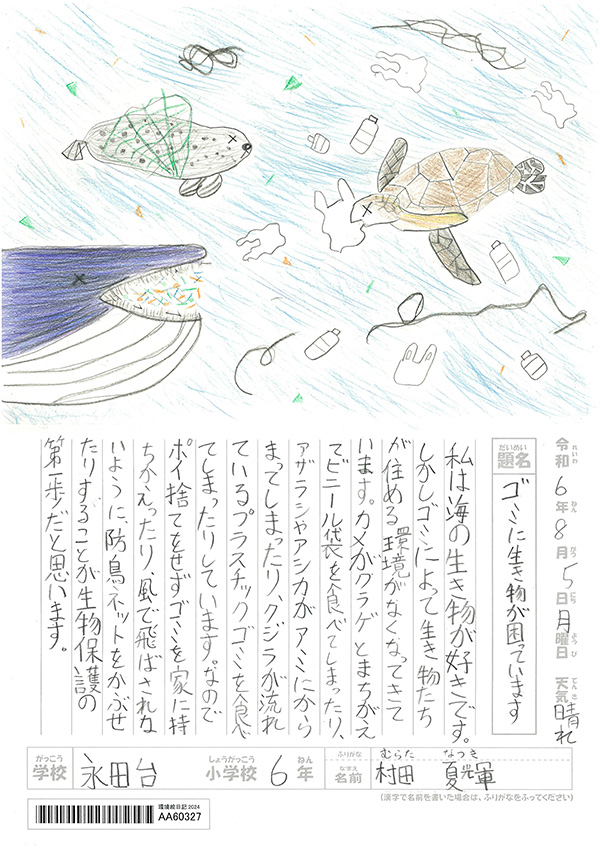 令和6年8月5日月曜日 天気晴れ
れいわ ねん がつ にち ようび てんき
だいめい
題名 ゴミに生き物が困っています
私は海の生き物が好きです。
しかしゴミによって生き物たち
が住める環境がなくなってきて
います。カメがクラゲとまちがえ
てビニール袋を食べてしまったり、
アザラシやアシカがアミにから
まってしまったり、クジラが流れ
ているプラスチックゴミを食べ
てしまったりしています。なので
ポイ捨てをせずゴミを家に持
ちかえったり、風で飛ばされな
いように、防鳥ネットをかぶせ
たりすることが生物保護の
第一歩だと思います。
がっこう しょうがっこう ねん ふりがな むらた なつき
学校 永田台 小学校 6年 なまえ 名前 村田 夏輝
(漢字で名前を書いた場合は、ふりがなをふってください)
環境絵日記2024
AA60327